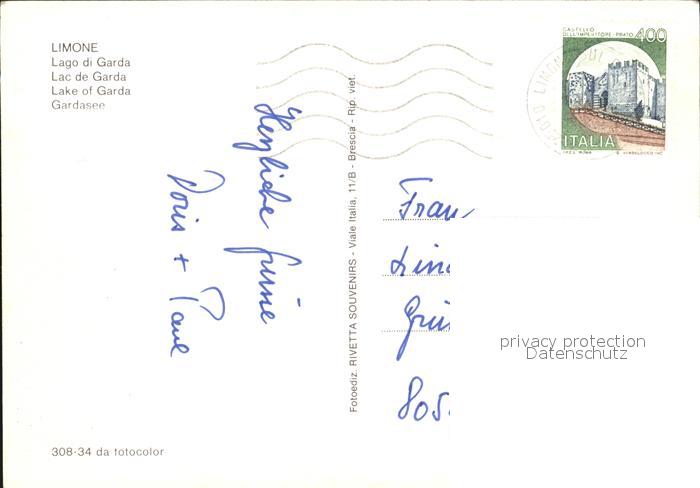 LIMONE
Lago di Garda
Lac de Garda
Lake of Garda
Gardasee
CASTELLO
DELL'IMPERATORE-PRATO 400
ITALIA
Herzliche Grüße
Doris + Paul
Fotoediz. RIVETTA SOUVENIRS - Viale Italia, 11/B - Brescia - Rip. viet.
privacy protection
Datenschutz
805
308-34 da fotocolor